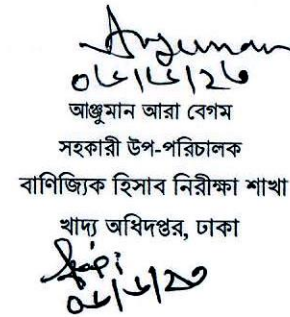 Anjuman
আঞ্জুমান আরা বেগম
সহকারী উপ-পরিচালক
বাণিজ্যিক হিসাব নিরীক্ষা শাখা
খাদ্য অধিদপ্তর, ঢাকা